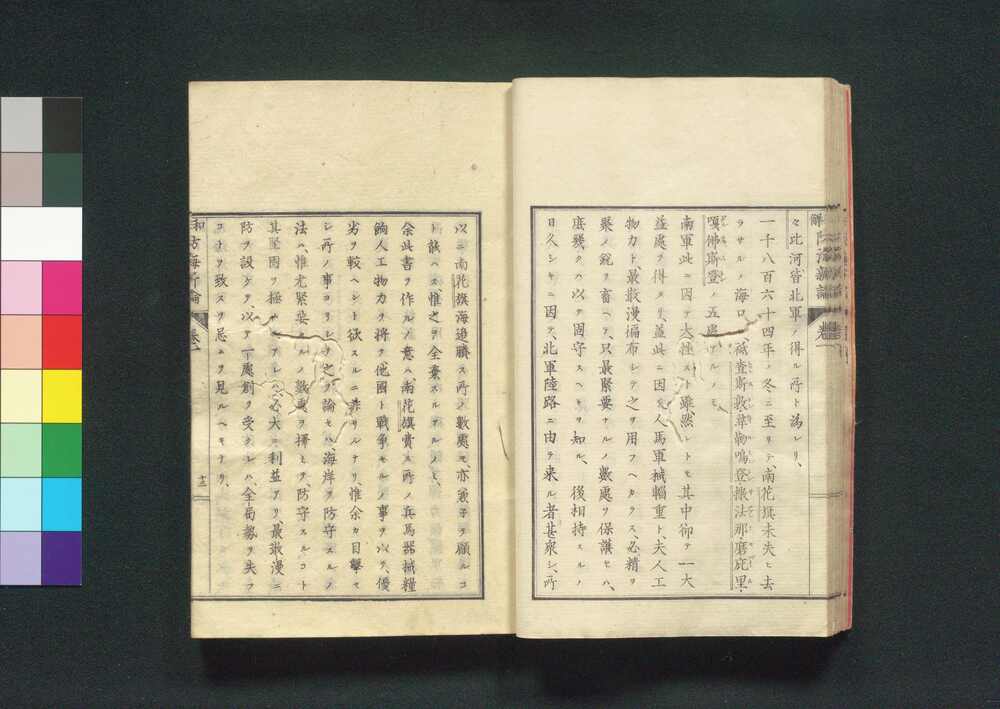 々此河皆北軍ノ得ル所ト為レリ、
一千八百六十四年ノ冬ニ至リテ、南花旗未失ヒ去
ヲサルノ海口、祗査斯敦韋勒鳴登撤法那磨庇里、
嘎佛斯登ノ五處
南軍此ニ因テ大挫ストモ雖、然レトモ其中却テ一大
益處ヲ得タリ、蓋此ニ因人馬軍械輜重ト、夫人工
物力ト最散漫徧布シテ之ヲ用フヘカラス、必精ヲ
聚メ鋭ヲ畜ヘテ、只最緊要ナルノ數處ヲ保護セハ、
庶幾クハ以テ固守スヘキヲ知ル、後相持スルノ
日久シキニ因テ、北軍陸路ニ由テ来ル者甚衆シ、所
以ニ南花旗海邊購ス所ノ數處モ、亦
誠ハス、惟之ヲ全棄スルアルノミ、
余此書ヲ作ルノ意ハ南花旗費ス所ノ兵馬器械糧
餉人工物力ヲ將テ他國ト戰爭セルノ事ヲ以テ、優
劣ヲ較ヘント欲スルニ非サルナリ、惟余カ目撃セ
シ所ノ事ヨリシテ之ヲ論セハ、海岸ヲ防守スルノ
法ハ、惟尤緊要ナルノ數處ヲ擇ヒテ、防守スルコト
其堅固ヲ極必大ニ利益アリ、最散漫ニ
防ヲ設ケテ、以テ一處創ヲ受クレハ、全局勢ヲ失フ
コトヲ致スヲ忌ニヲ見ルヘキナリ、
防海新論 巻一
十二